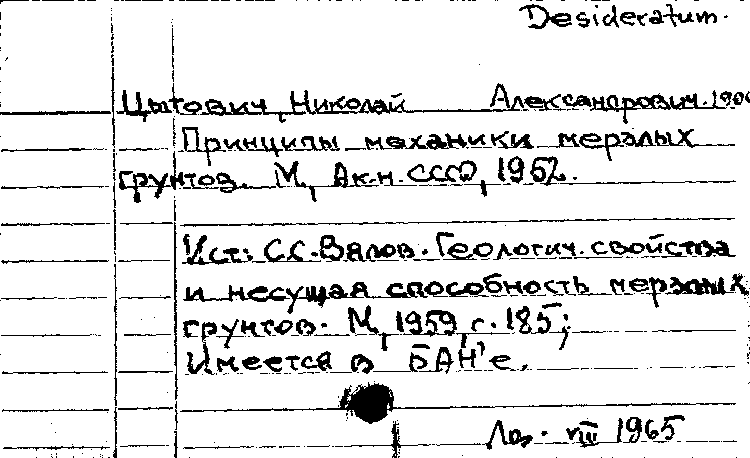 Desideratum.
Цытович, Николай Александрович. 1900
Принципы механики мерзлых
грунтов. М., Ак.н. СССР, 1952.
Ист: С.С. Вялов. Геологич. свойства
и несущая способность мерзлых
грунтов. М, 1959, с. 185;
Имеется в БАН'е.
VIII 1965